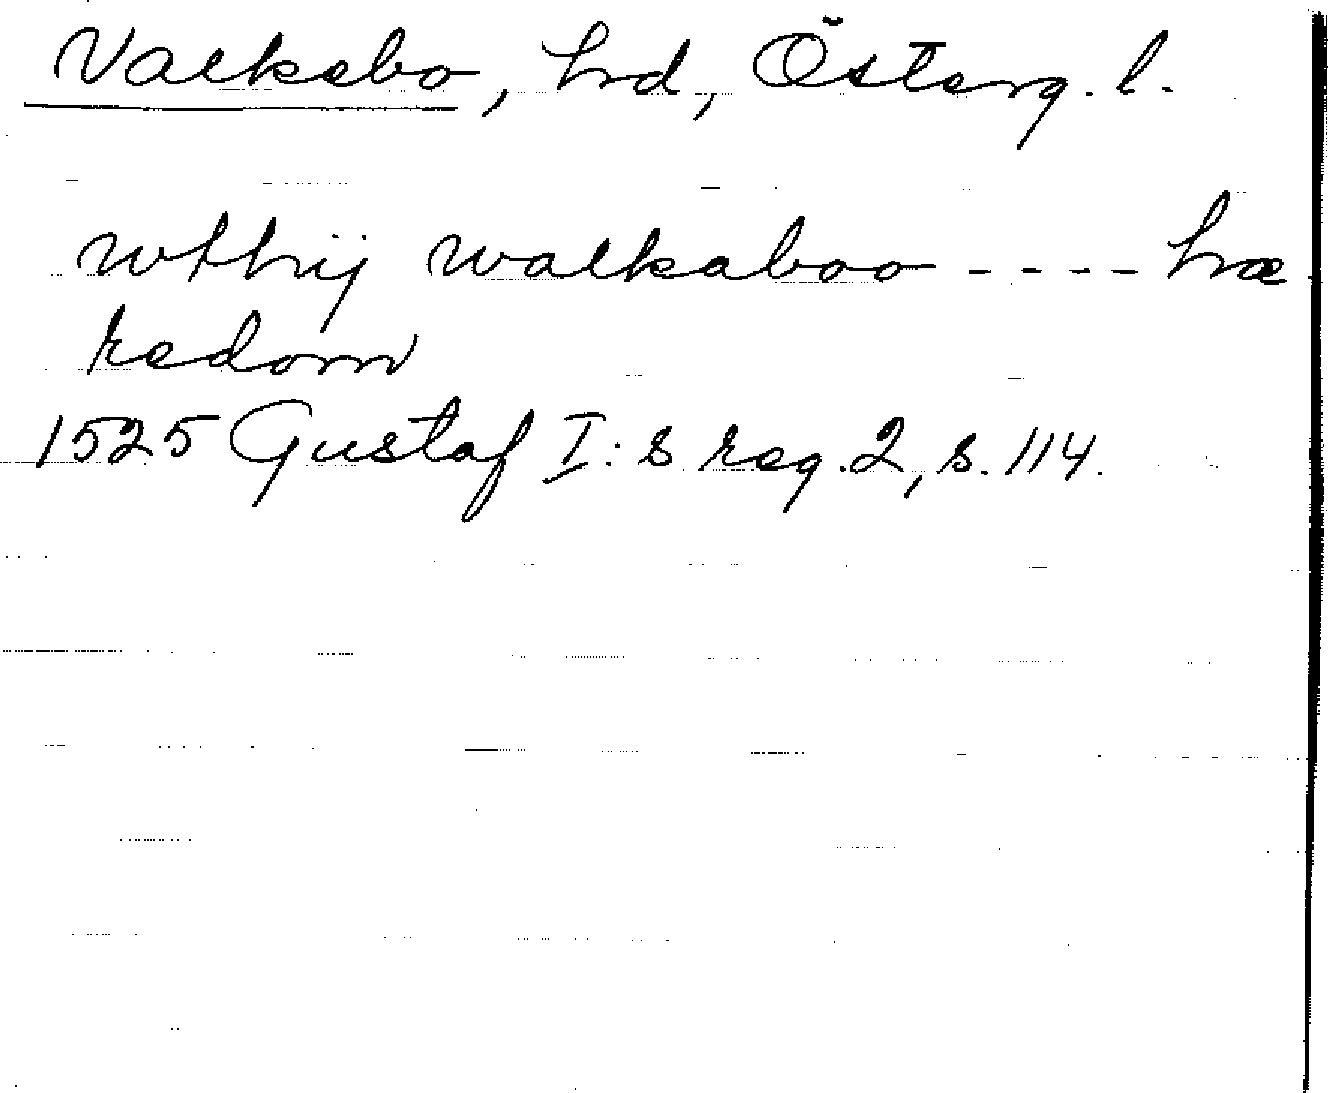 Valkebo, hrd, Österg. l.
wthij walkaboo ---- hræ
redom
1525 Gustaf I:s reg. 2, s. 114.